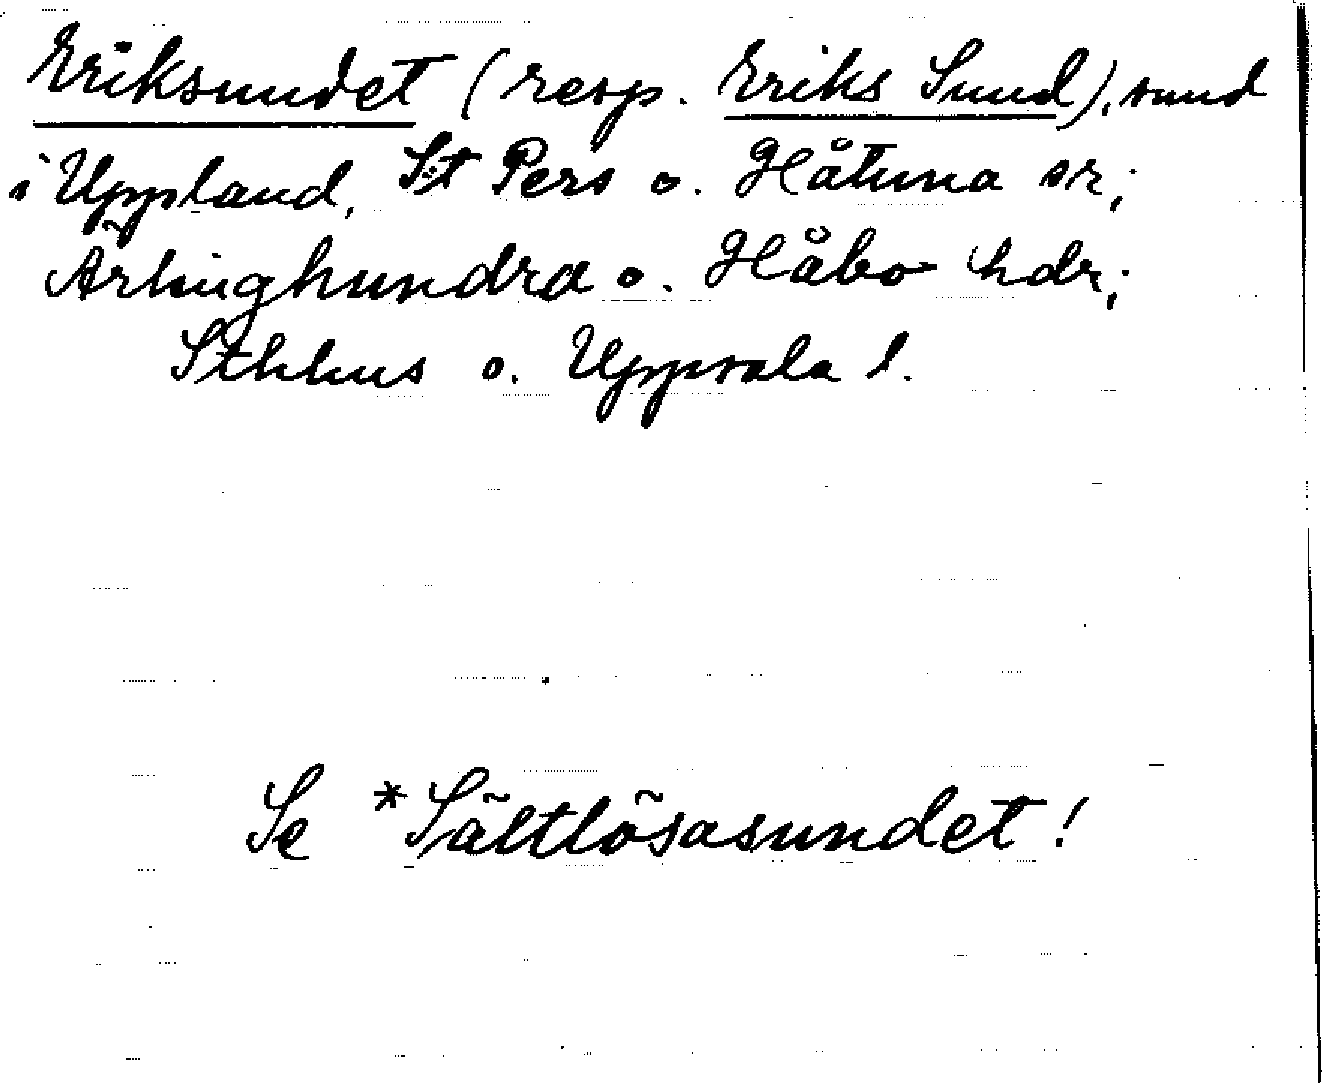 Eriksundet (resp. Eriks Sund), sund
i Uppland, St Pers o. Håtuna sr;
Ärlinghundra o. Håbo hdr;
Sthlms o. Uppsala l.
Se *Sältlösasundet!